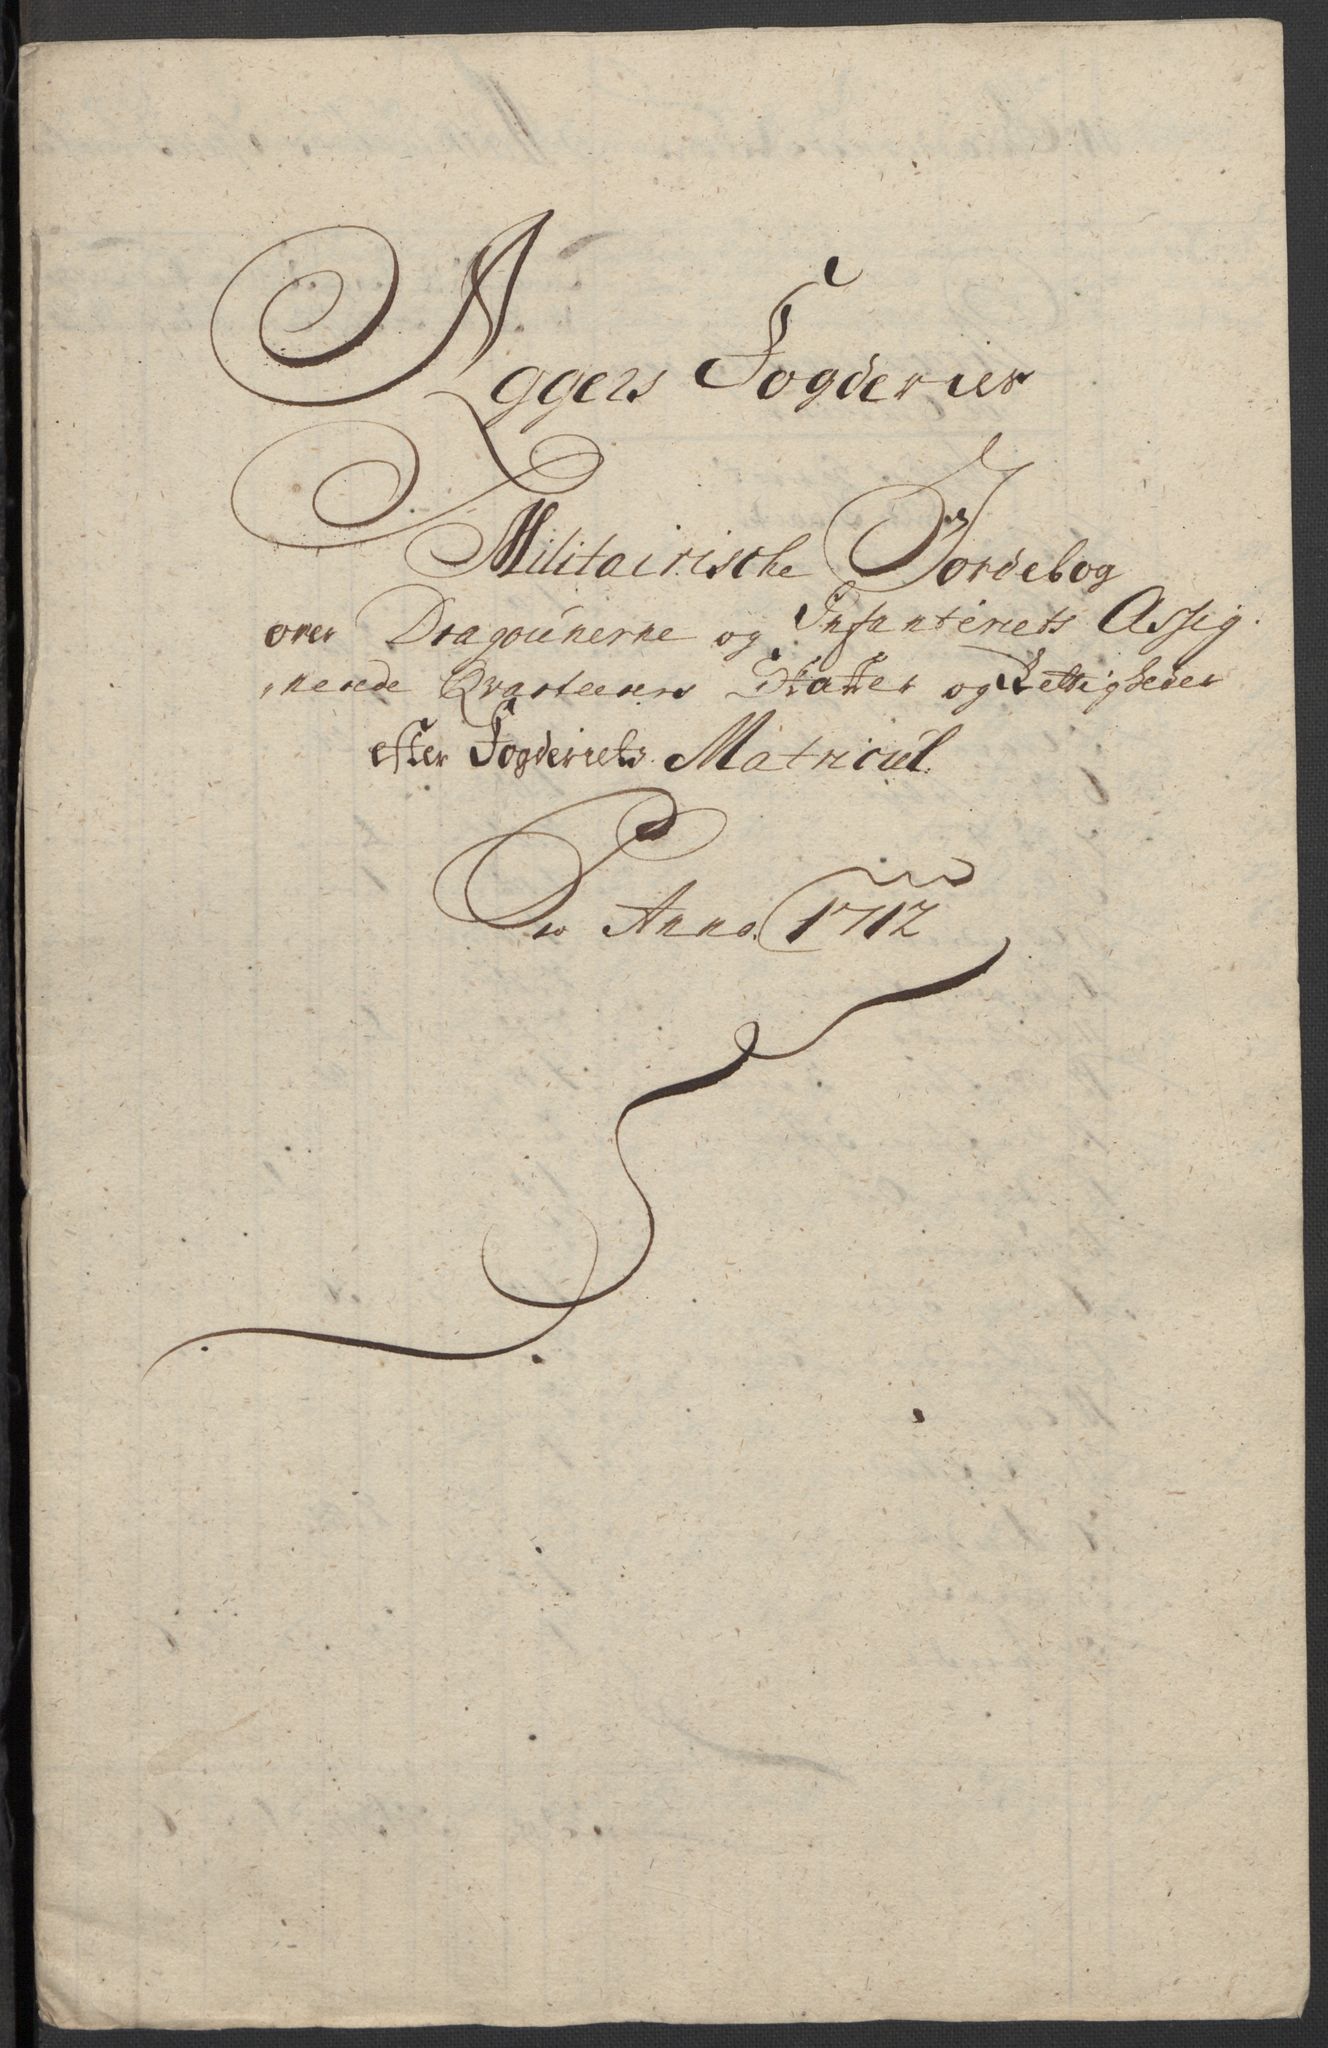 Aggers Fogderies
Militairische Jordebog
over Dragounerne og Infanteriets Assig-
nerede Qvarteerers Skatter og Rettigheder
efter Fogderiets Matricul
Pro Anno 1712